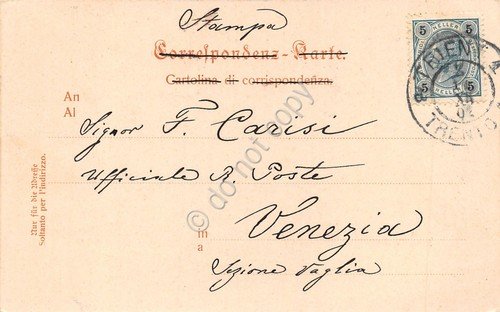 Stampa
Correspondenz-Karte.
Cartolina di corrispondenza.
5 HELLER 5
5 5
TRIENT 1
TRENTO
An
Al
Signor F. Carisi
Ufficiale R. Poste
in
a
Venezia
Sezione Vaglia
Nur für die Adresse
Soltanto per l'indirizzo.
© do not copy